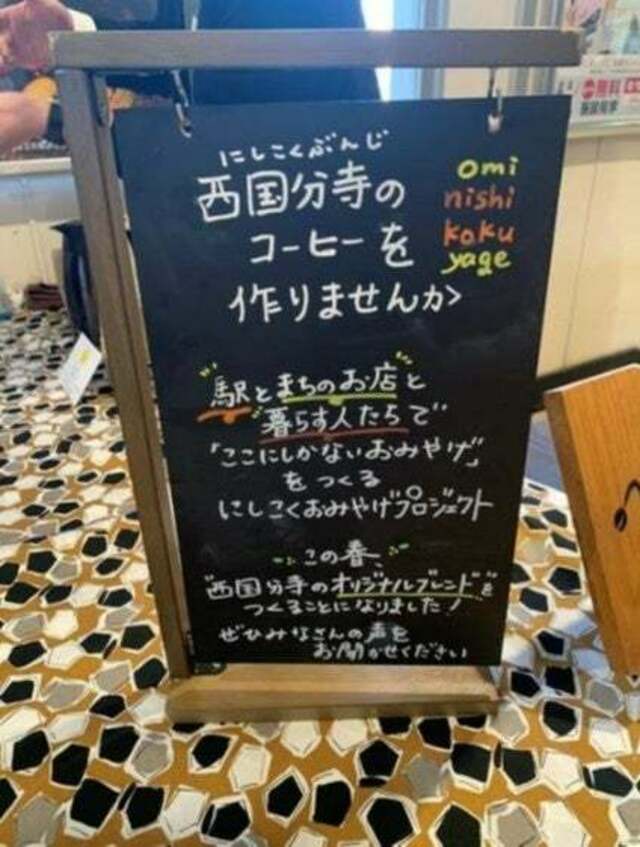 にしこくぶんじ
西国分寺の
コーヒーを
作りませんか
omi
nishi
koku
yage
駅とまちのお店と
暮らす人たちで
「ここにしかないおみやげ」
をつくる
にしこくおみやげプロジェクト
この春、
"西国分寺のオリジナルブレンド"を
つくることになりました!
ぜひみなさんの声を
お聞かせください
無料